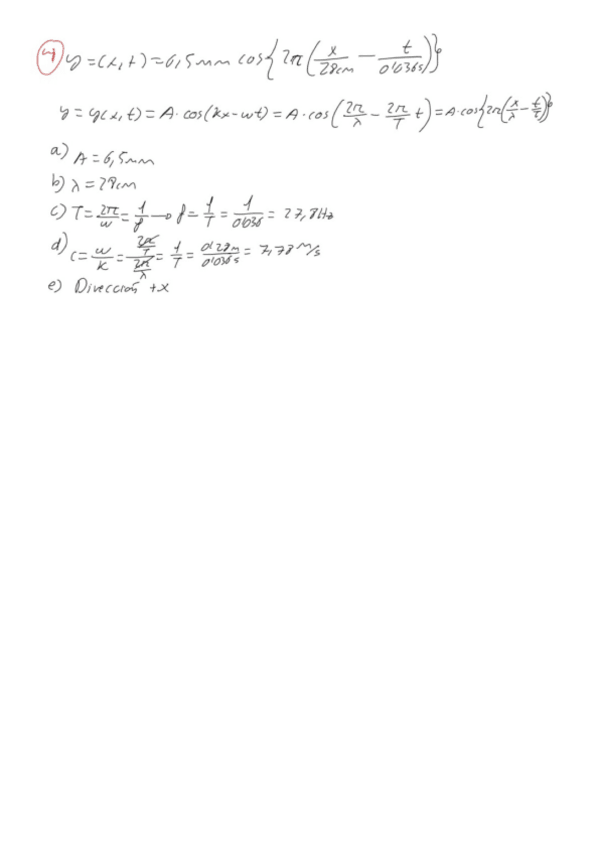 4) y = (x, t) = 6,5mm cos{2π(x/28cm − t/0'036s)}
y = y(x, t) = A · cos(kx − wt) = A · cos(2π/λ − 2π/T t) = A · cos{2π(x/λ − t/t)}
a) A = 6,5mm
b) λ = 28cm
c) T = 2π/w = 1/f → f = 1/T = 1/0'036 = 27,8Hz
d) c = w/k = (2π/T)/(2π/λ) = 1/T = 0'28m/0'036s = 7,78 m/s
e) Dirección +x